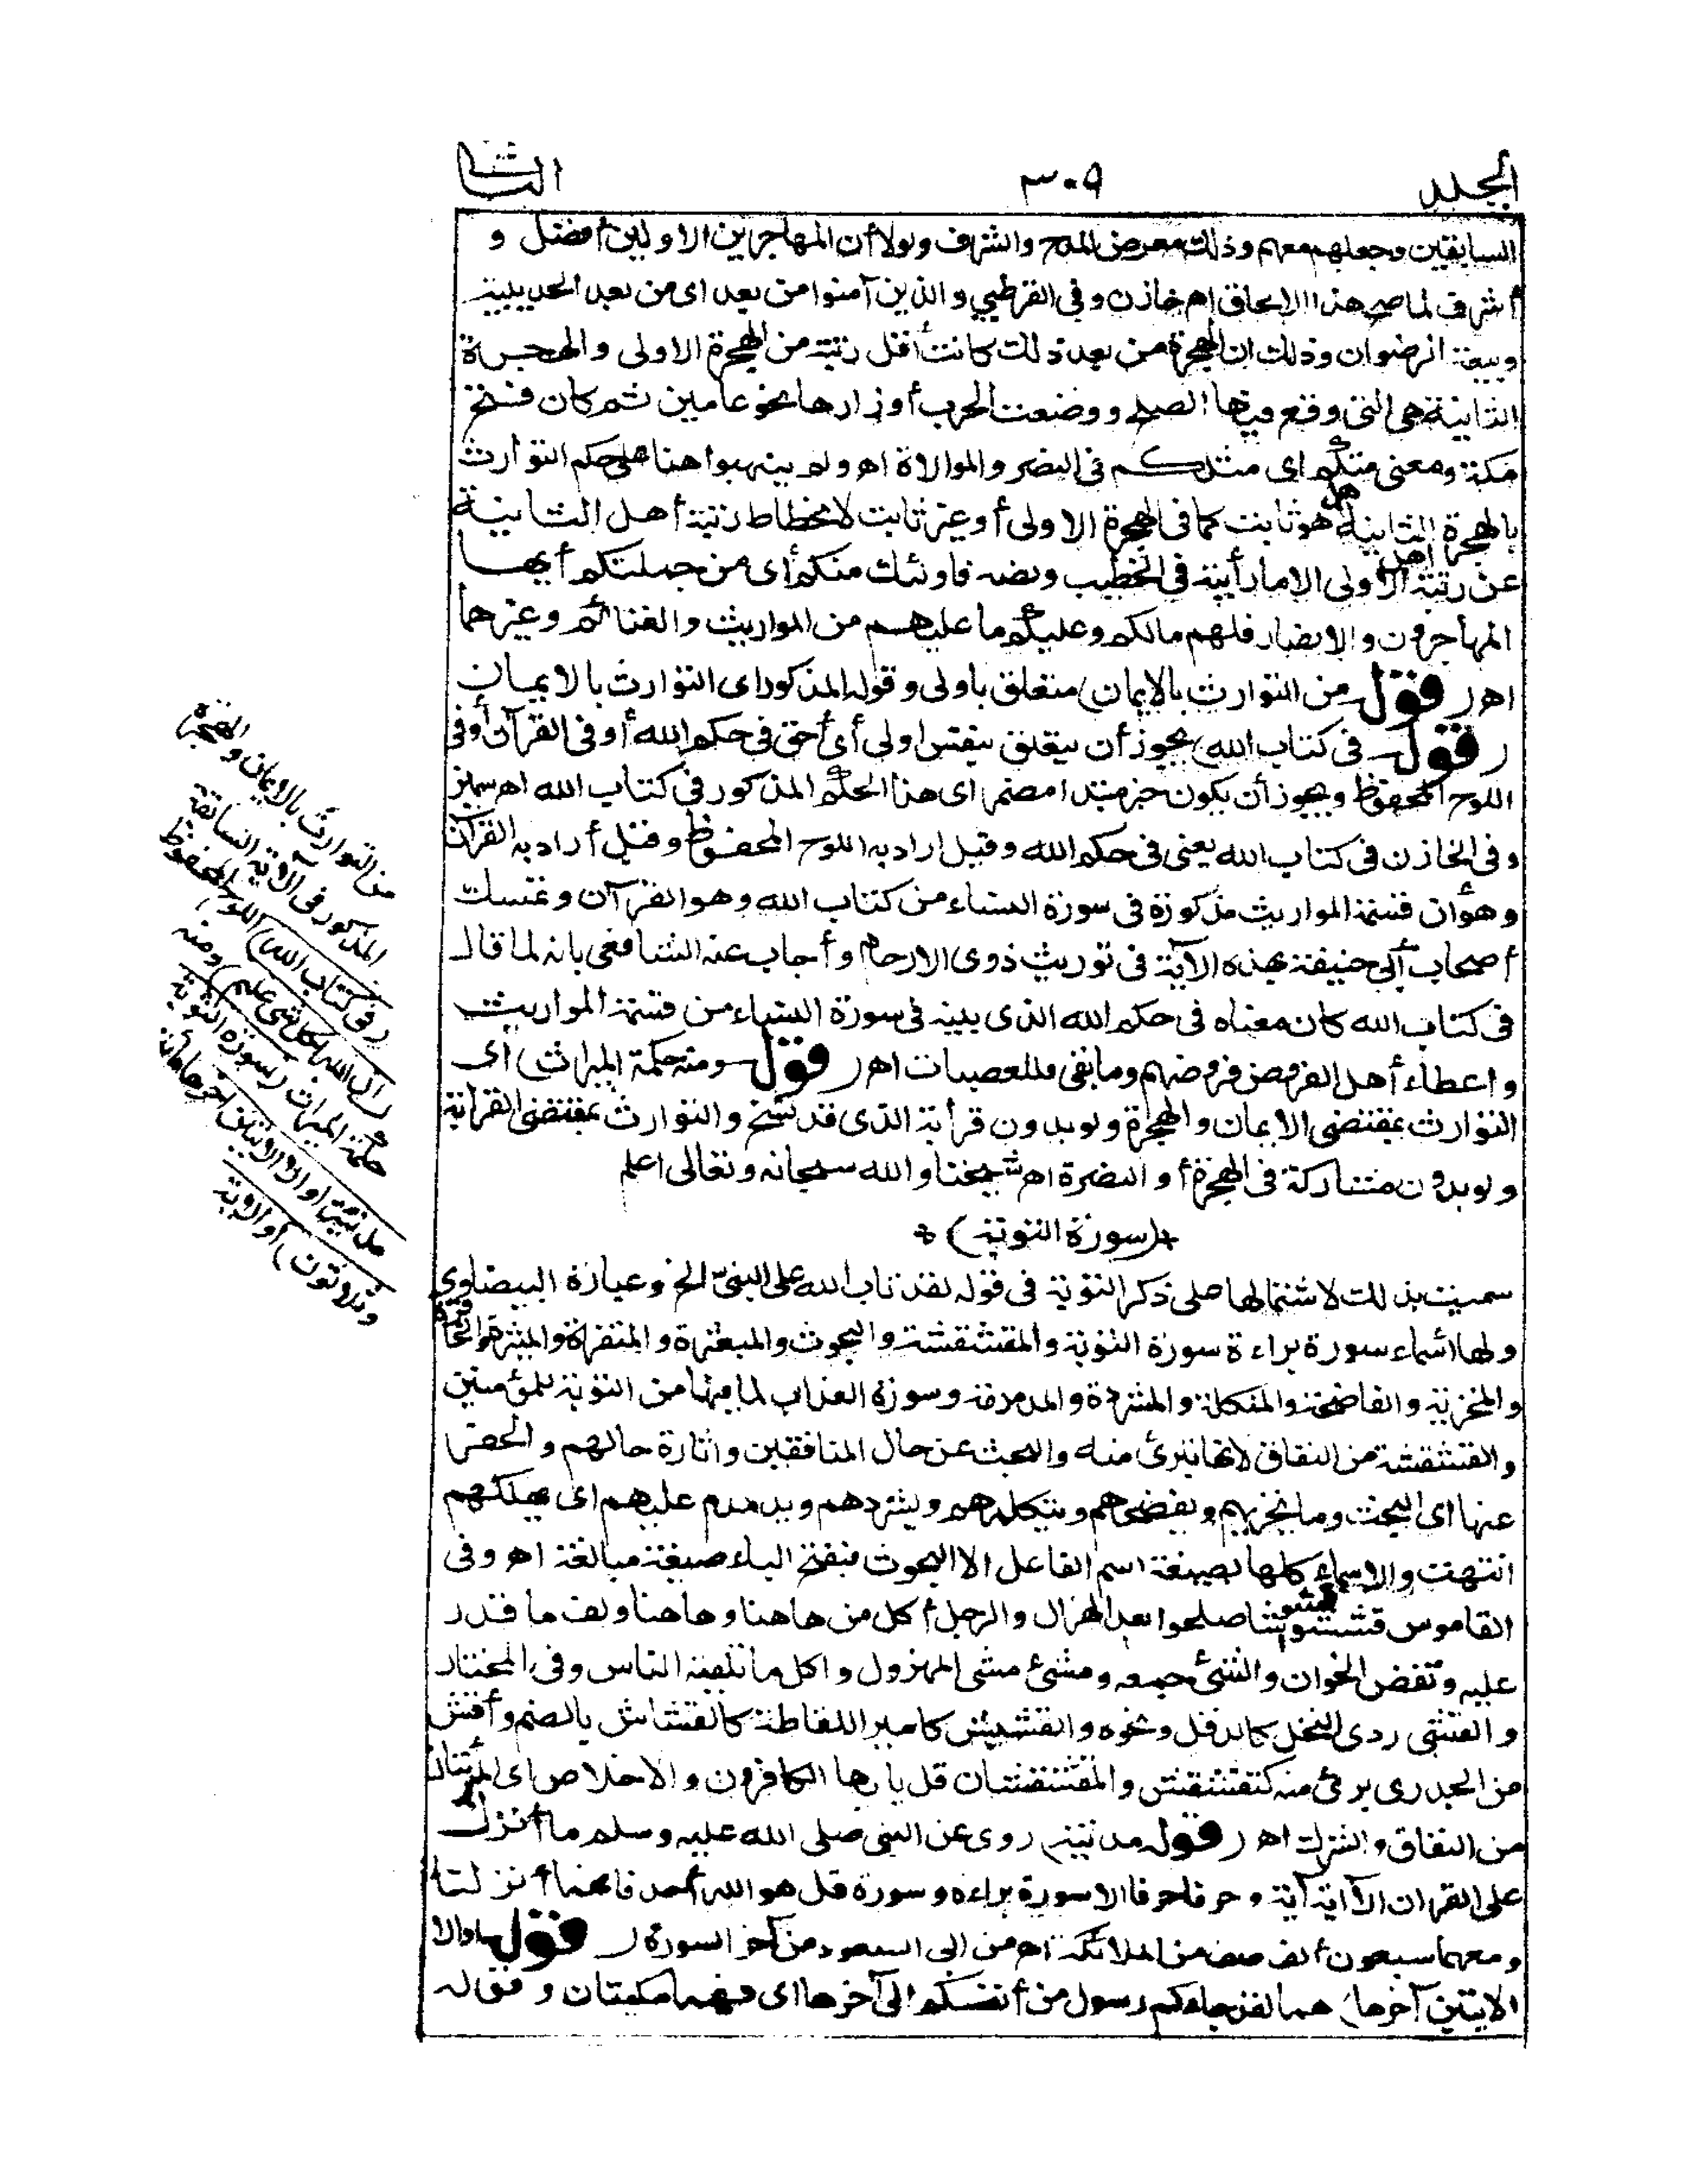 المجلد ٣٠٩ الثانى
السابقين وجعلهم معهم وذلك معرض المدح والشرف ولولا أن المهاجرين الاولين أفضل و
أشرف لما صح هذا الالحاق اهم خازن وفى القرطبي والذين آمنوا من بعد اى من بعد الحديبية
وبيعة الرضوان وذلك ان الهجرة من بعد ذلك كانت أقل رتبة من الهجرة الاولى والهجرة
الثانية هى التى وقع فيها الصلح ووضعت الحرب أوزارها نحو عامين ثم كان فتح
مكة ومعنى منكم اى مثلكم فى النصر والموالاة اه ولم ينبهوا هنا على حكم التوارث
بالهجرة الثانية هل هو ثابت كما فى الهجرة الاولى أو غير ثابت لانحطاط رتبة أهل الثانية
عن رتبة أهل الاولى الا ما رأيته فى الخطيب ونصه فاولئك منكم أى من جملتكم أيها
المهاجرون والانصار فلهم مالكم وعليكم ما عليهم من المواريث والغنائم وغيرهما
اه ر قوله من التوارث بالايمان) متعلق باولى وقوله المذكور اى التوارث بالايمان
ر قوله فى كتاب الله) يجوز أن يتعلق بنفس اولى أى أحق فى حكم الله أو فى القرآن أو فى
اللوح المحفوظ ويجوز أن يكون خبر مبتدا مضمر اى هذا الحكم المذكور فى كتاب الله اه سمين
وفى الخازن فى كتاب الله يعنى فى حكم الله وقيل اراد به اللوح المحفوظ وقيل أراد به القرآن
وهو أن قسمة المواريث مذكورة فى سورة النساء من كتاب الله وهو القرآن وتمسك
أصحاب أبى حنيفة بهذه الآية فى توريث ذوى الارحام وأجاب عنه الشافعى بانه لما قال
فى كتاب الله كان معناه فى حكم الله الذى بينه فى سورة النساء من قسمة المواريث
واعطاء أهل الفروض فروضهم وما بقى فللعصبات اه ر قوله ومنه حكمة الميراث) اى
التوارث بمقتضى الايمان والهجرة ولو بدون قرابة الذى قد نسخ والتوارث بمقتضى القرابة
ولو بدون مشاركة فى الهجرة أو النصرة اه شيخنا والله سبحانه وتعالى اعلم
*(سورة التوبة)*
سميت بذلك لاشتمالها على ذكر التوبة فى قوله لقد تاب الله على النبى الخ وعبارة البيضاوى
ولها اسماء سورة براءة سورة التوبة والمقشقشة والبحوث والمبعثرة والمنقرة والمثيرة والحافرة
والمخزية والفاضحة والمنكلة والمشردة والمدمدمة وسورة العذاب لما فيها من التوبة للمؤمنين
والقشقشة من النفاق لانها تبرئ منه والبحث عن حال المنافقين واثارة حالهم والحفر
عنها اى البحث وما يخزيهم ويفضحهم وينكلهم ويشردهم ويدمدم عليهم اى يهلكهم
انتهت والاسماء كلها بصيغة اسم الفاعل الا البحوث فبفتح الباء صيغة مبالغة اه وفى
القاموس قش قشوشا صلحوا بعد الهزال والرجل أكل من هاهنا وهاهنا ولف ما قدر
عليه ونفض الخوان والشئ جمعه ومشى مشى المهزول واكل ما تلقيه الناس وفى المختار
والقش ردى النخل كالدقل ونحوه والقشيش كامير اللقاطة كالقشاش بالضم وأقش
من الجدرى برئ منه كتقشقش والمقشقشتان قل يا ايها الكافرون والاخلاص اى المبرئتان
من النفاق والشرك اه ر قوله مدنية) روى عن النبى صلى الله عليه وسلم ما أنزل
على القران الا آية آية وحرفا حرفا الا سورة براءة وسورة قل هو الله أحد فانهما أنزلتا
ومعهما سبعون ألف صف من الملائكة اه من ابى السعود من آخر السورة ر قوله والا
الايتين آخرها) هما لقد جاءكم رسول من أنفسكم الى آخرها اى فهما مكيتان وقوله
من التوارث بالايمان والهجرة
المذكور فى الآية السابقة
رفى كتاب الله) اللوح المحفوظ
ران الله بكل شئ عليم) ومنه
حكمة الميراث رسورة التوبة
مدنية أو الا الايتين آخرها مائة
وثلاثون) أو الا آية